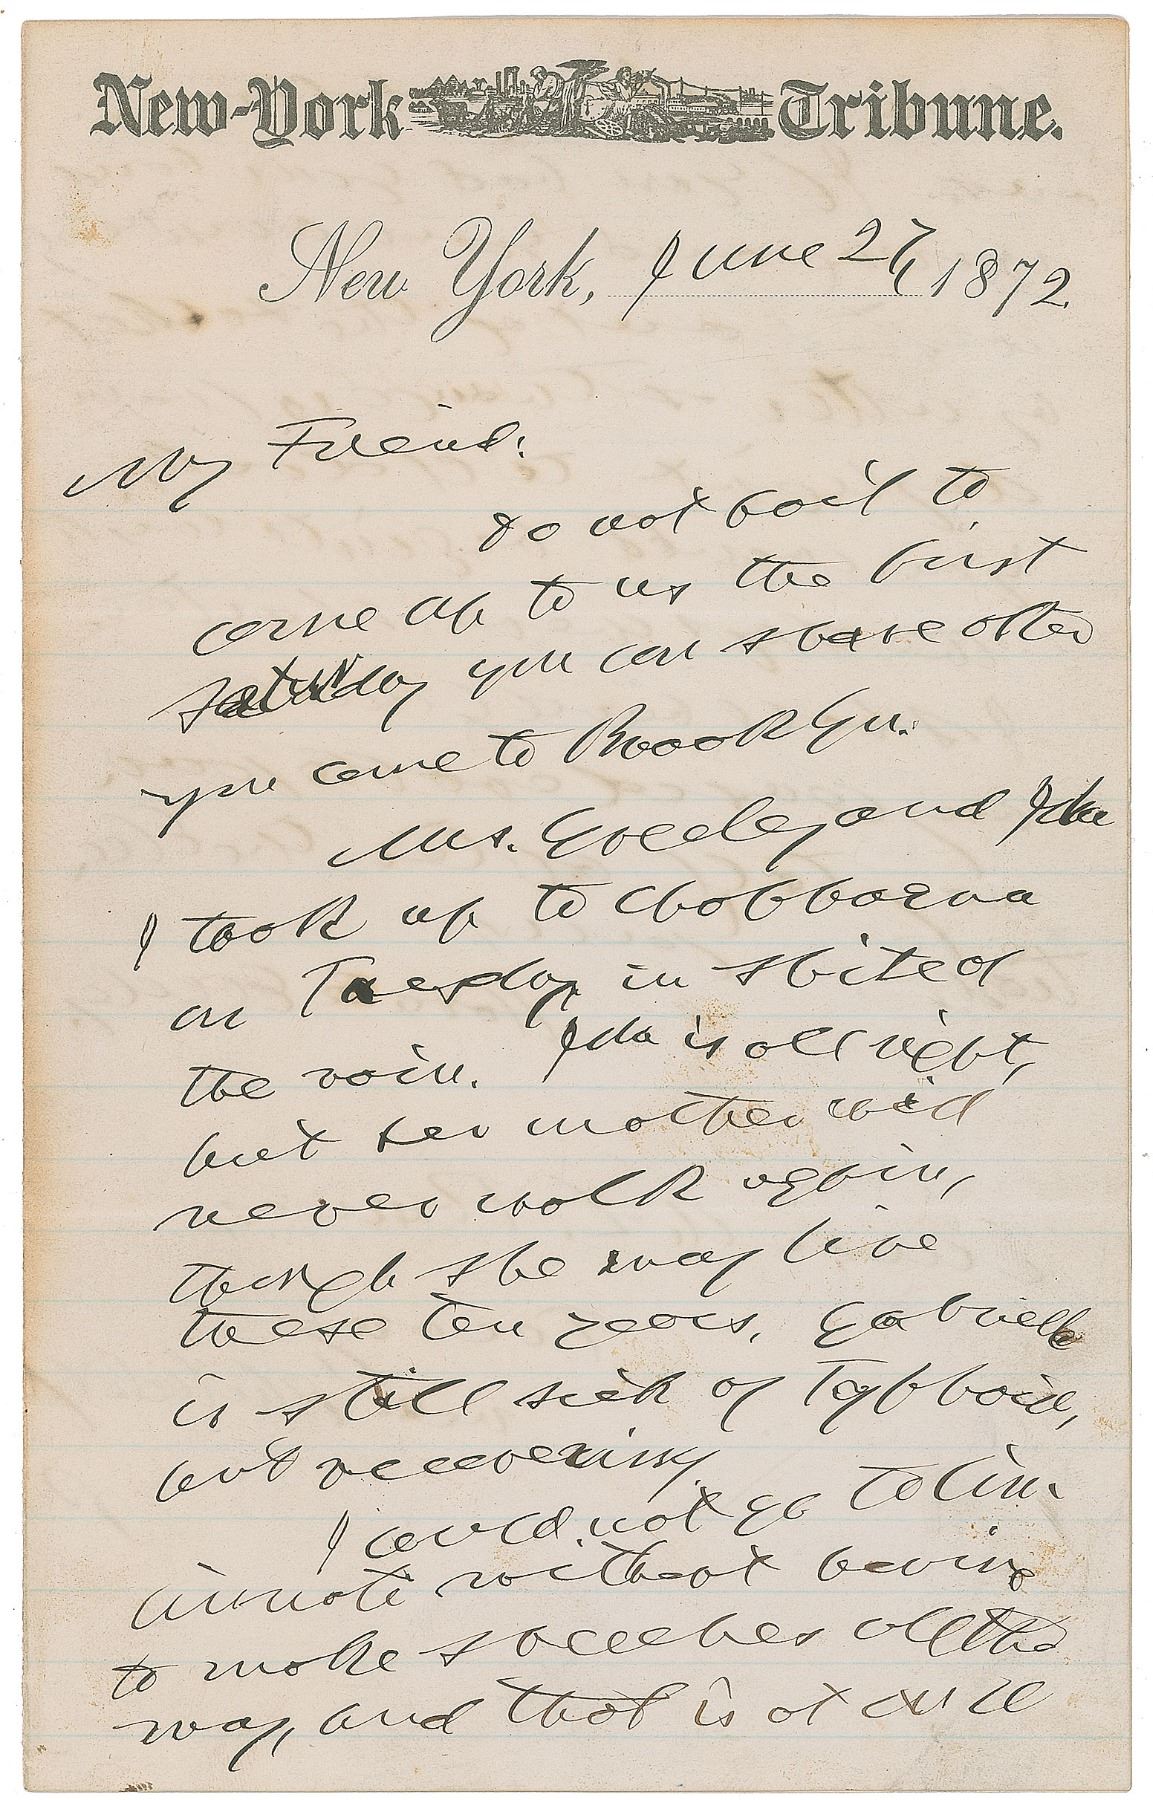 New-York Tribune.
New York, June 27, 1872.
My Friend:
Do not fail to
come up to us the first
Saturday you can spare after
you come to Brooklyn.
Mrs. Greeley and Ida
I took up to Chappaqua
on Tuesday, in spite of
the rain. Ida is all right,
but her mother will
never walk again,
though she may live
these ten years. Gabrielle
is still sick of Typhoid,
but recovering.
I could not go to Cin-
cinnati without having
to make speeches all the
way, and that is not